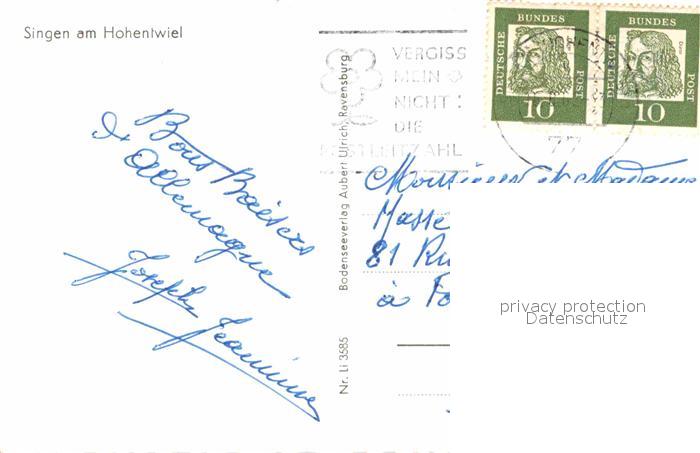 Singen am Hohentwiel
Bons Baisers
d'Allemagne
Joseph Jeannine
Bodenseeverlag Aubert Ulrich, Ravensburg
Nr. Li 3585
VERGISS
MEIN
NICHT
DIE
POSTLEITZAHL
77
DEUTSCHE BUNDES POST
10
DEUTSCHE BUNDES POST
10
Monsieur et Madame
Masse
81 Ru
à Fo
privacy protection
Datenschutz